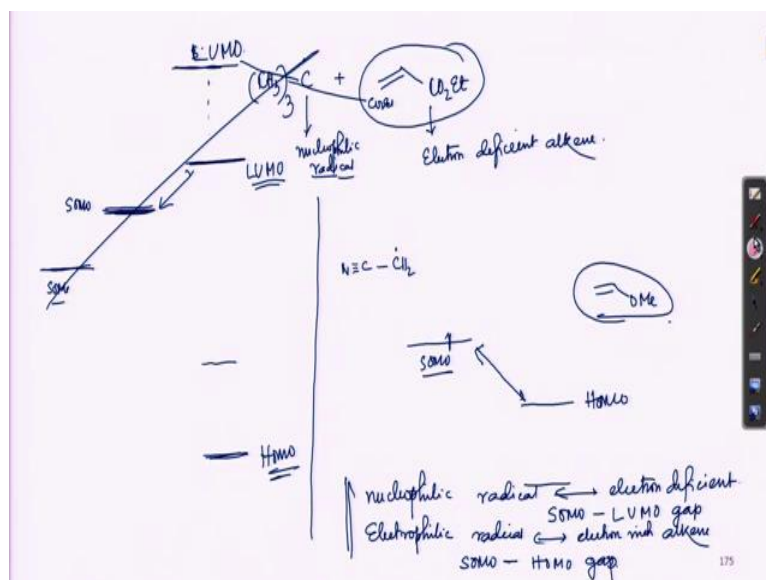 LUMO
(CH3)3-C + CO2Et
nucleophilic radical
Electron deficient alkene.
LUMO
SOMO
SOMO
N≡C-ĊH2
OMe
SOMO
HOMO
HOMO
nucleophilic radical ↔ electron deficient.
SOMO - LUMO gap
Electrophilic radical ↔ electron rich alkene
SOMO - HOMO gap
175